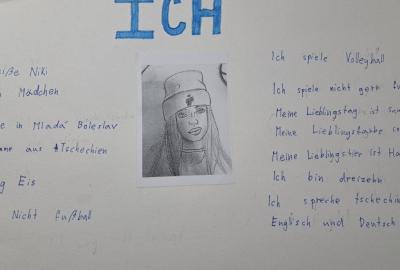 ICH
iße Niki
Mädchen
e in Mladá Boleslav
aus Tschechien
g Eis
Nicht fußball
Ich spiele Volleyball
Ich spiele nicht gern fu
Meine Lieblingstag ist
Meine Lieblingsfarbe
Meine Lieblingstier ist Ha
Ich bin dreizehn
Ich spreche tschechin
Englisch und Deutsch